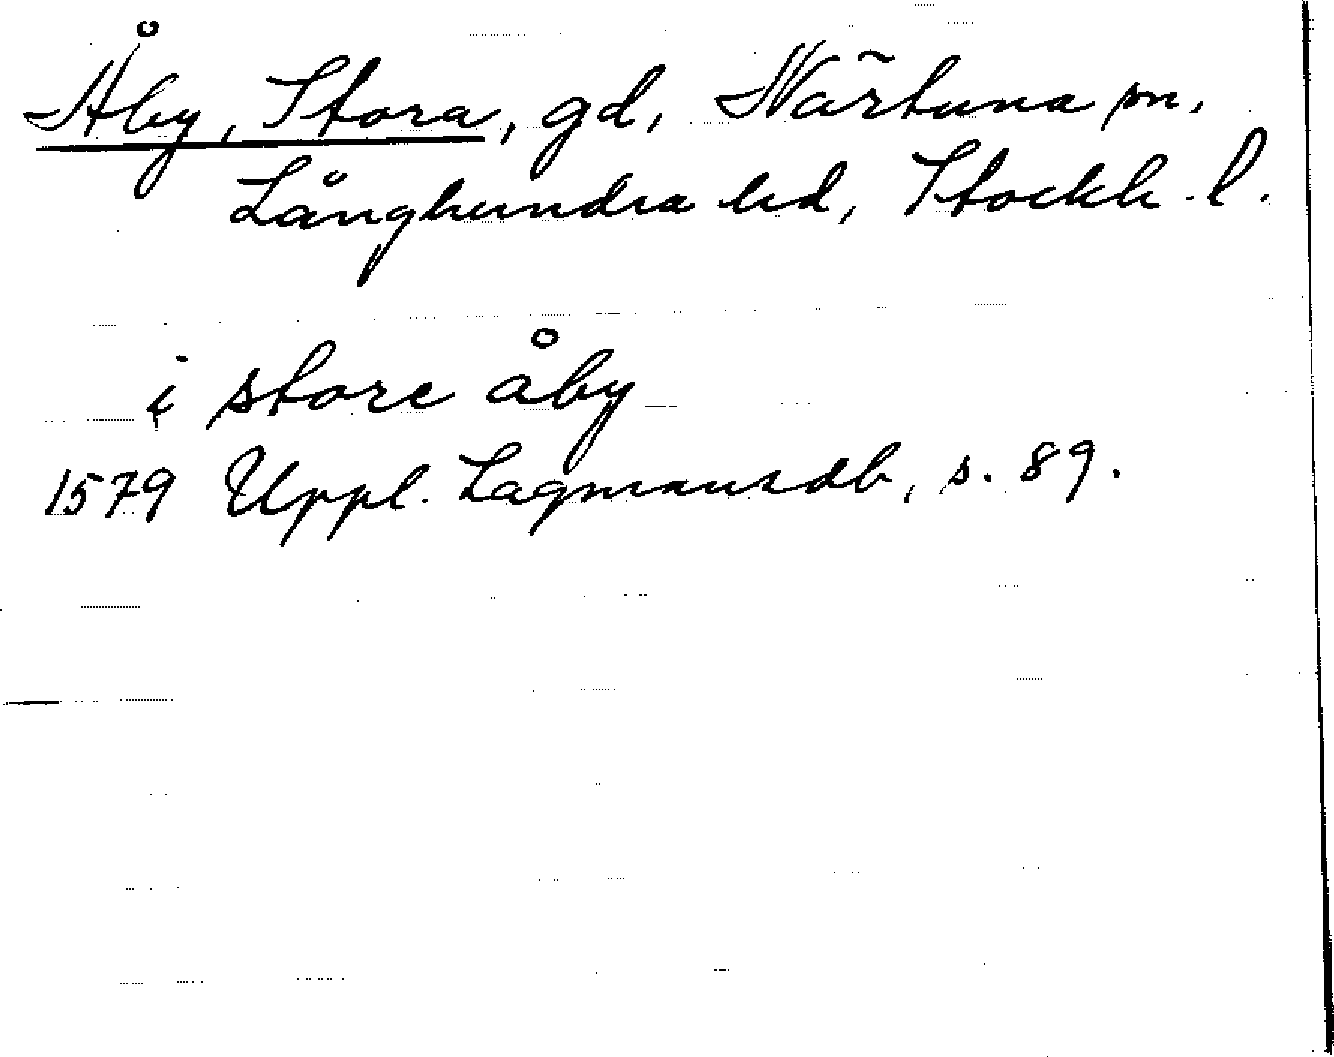 Åby, Stora, gd, Närtuna sn,
Långhundra hd, Stockh. l.
i store åby
1579 Uppl. Lagmansdb, s. 89.